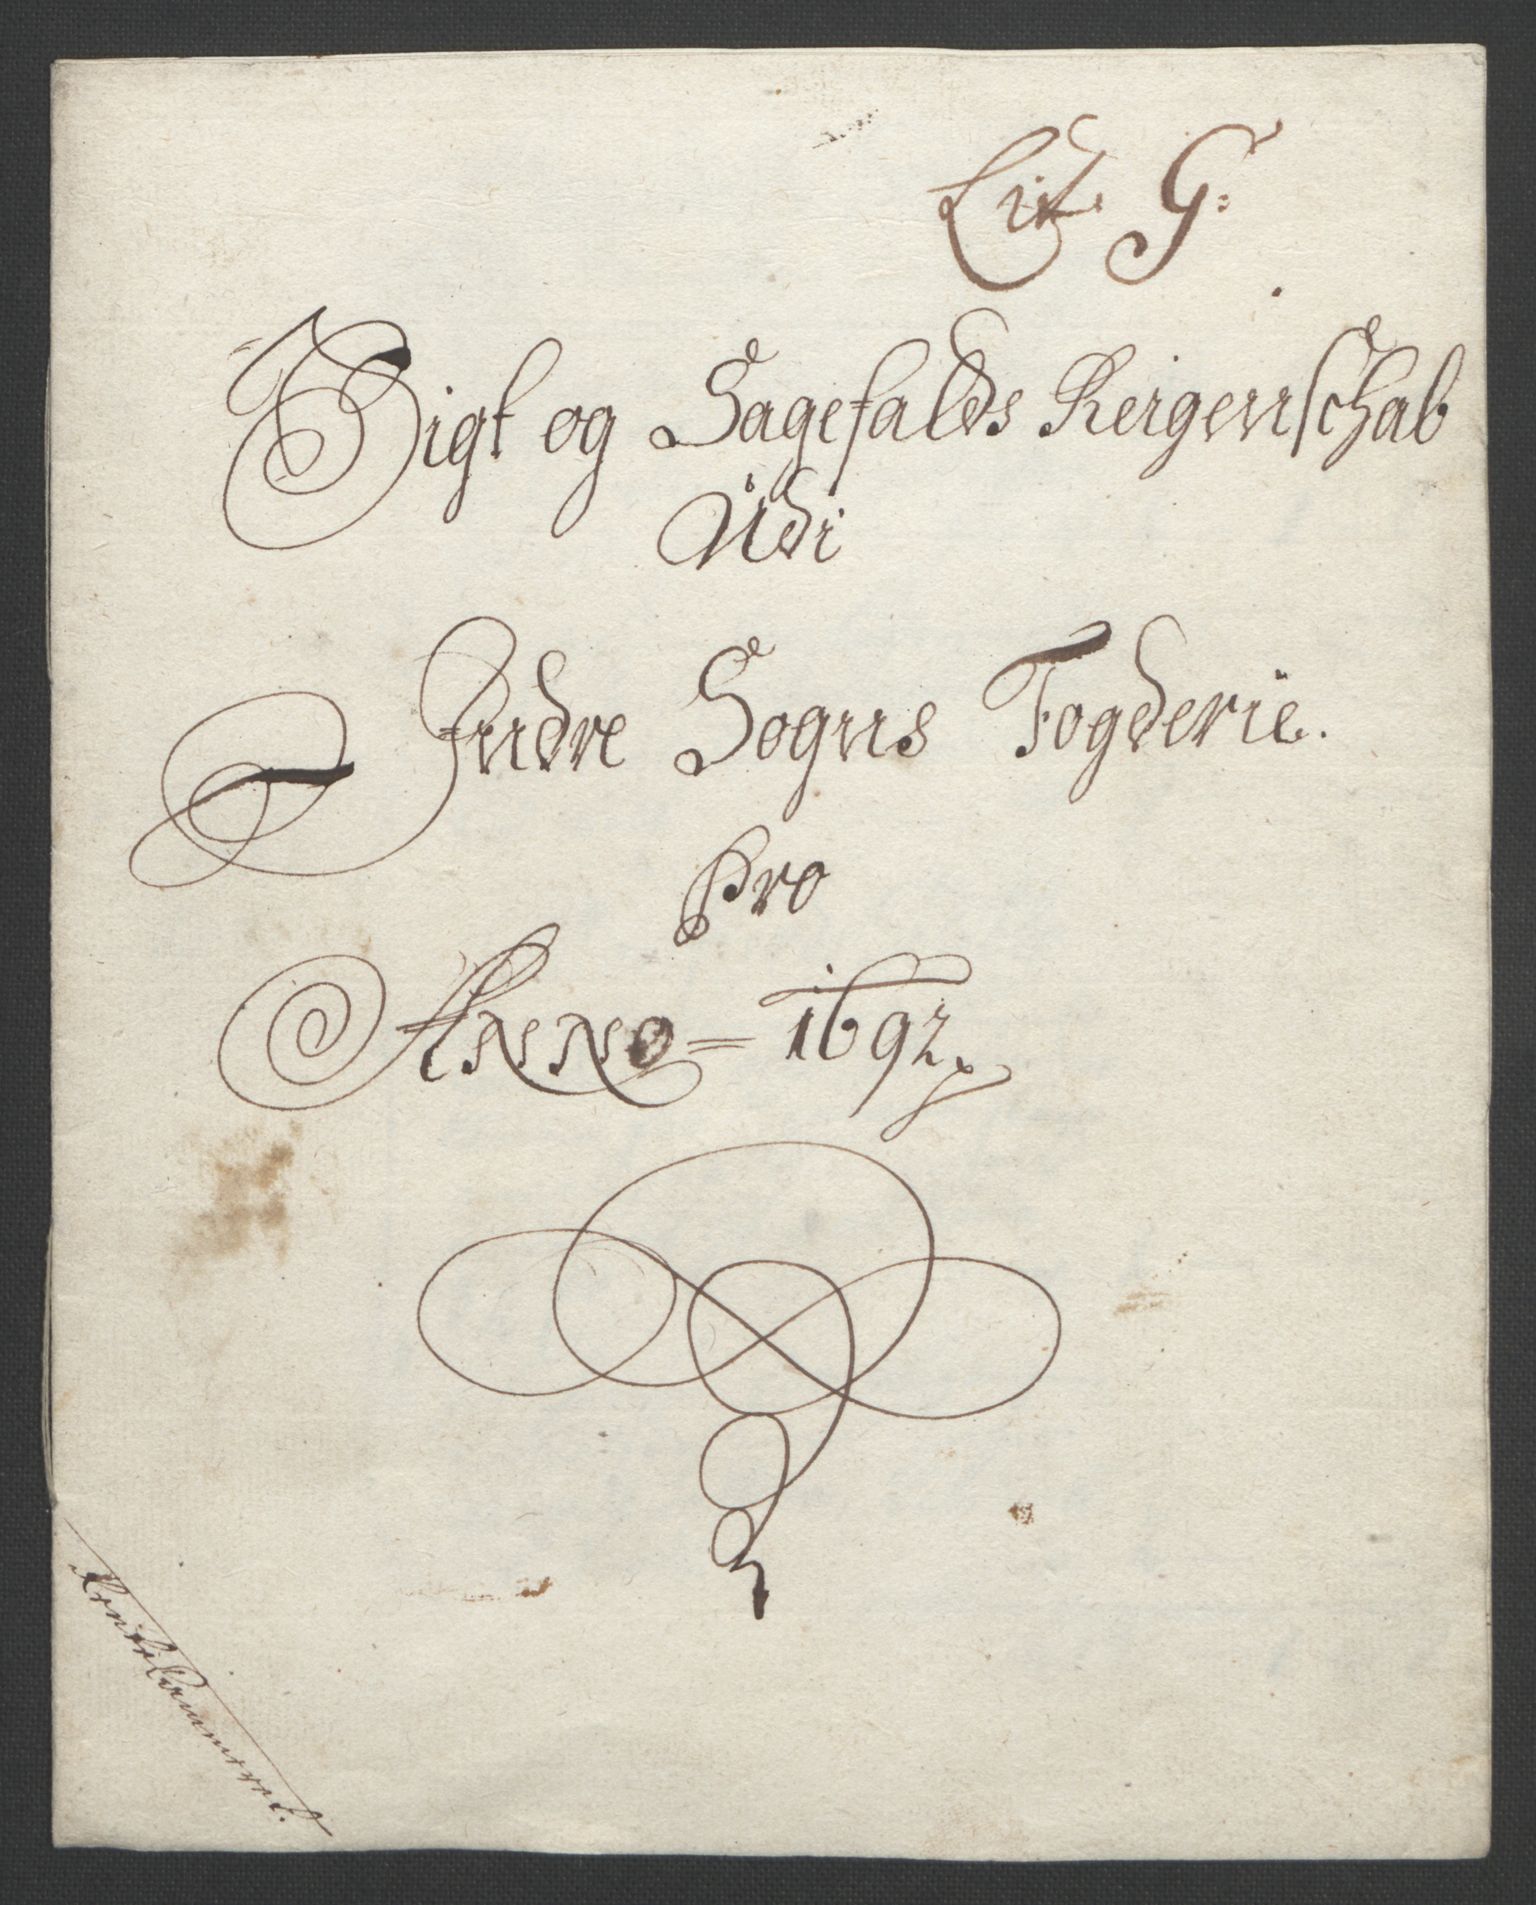 Lit. G:
Sigt og Sagefalds Reigenschab
Udi
Indre Sogns Fogderie.
Pro
Anno = 1692
Rentekammeret.